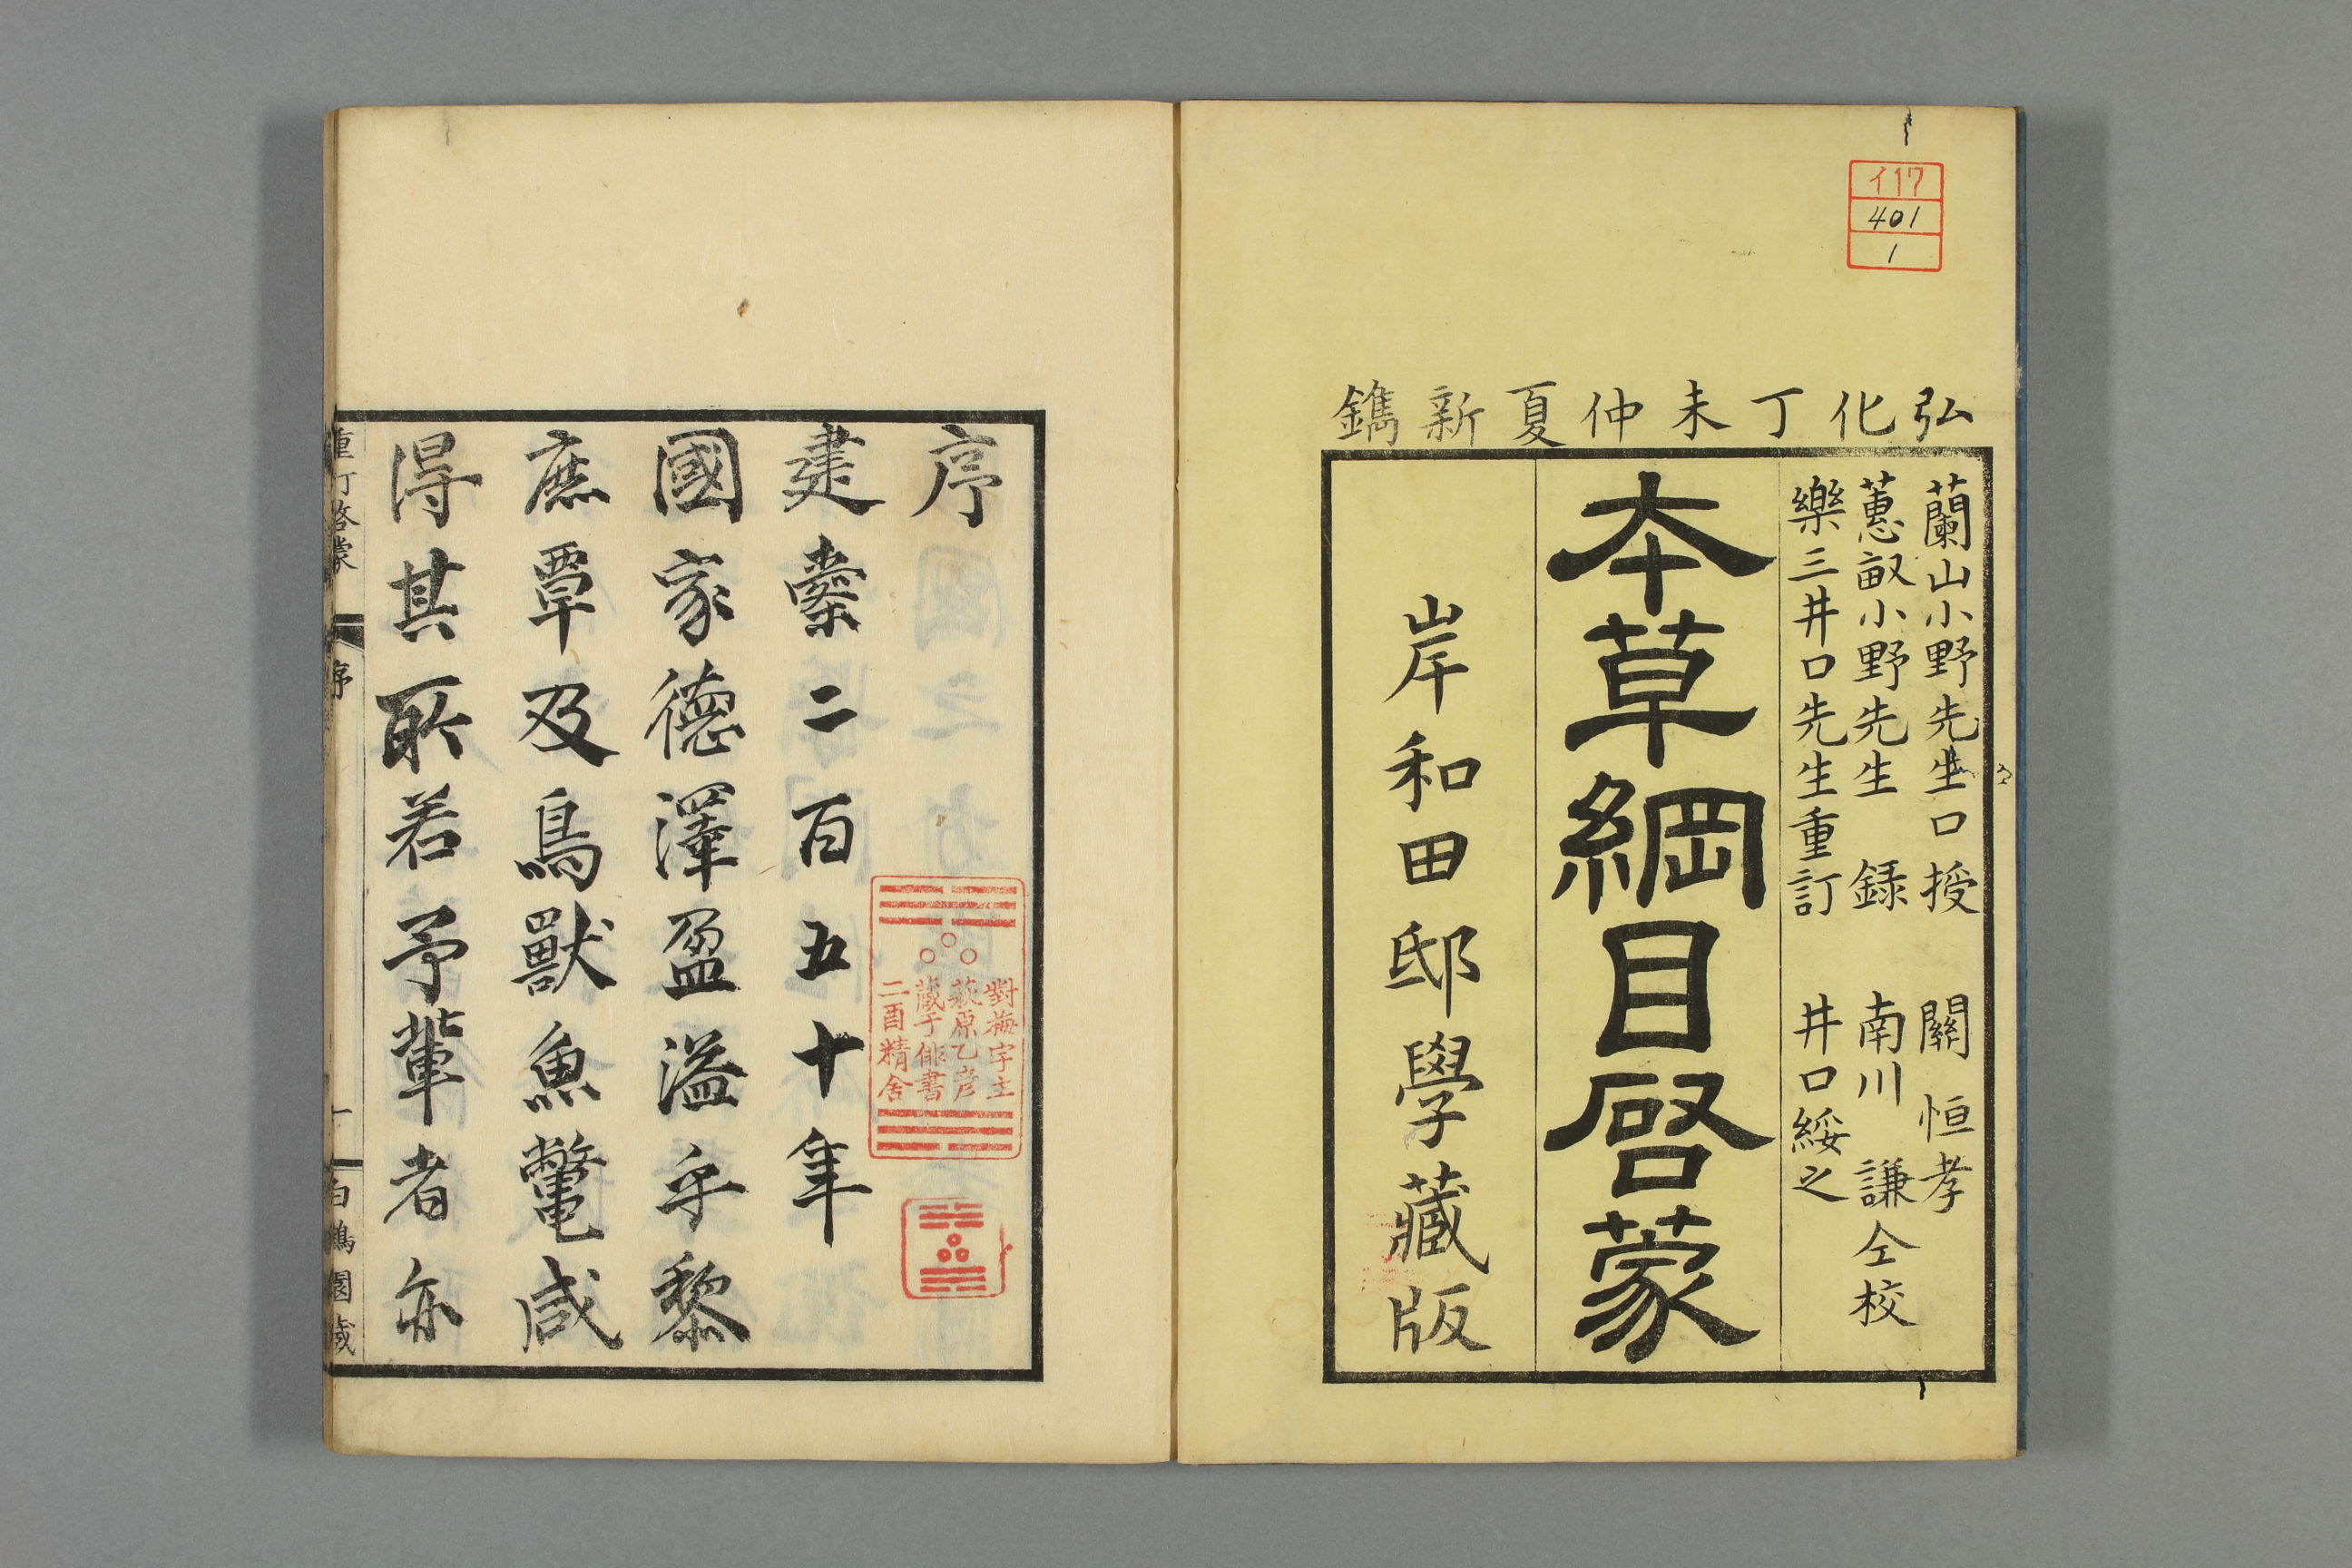 イ17
401
1
弘化丁未仲夏新鐫
蘭山小野先生口授 關恒孝
蕙畝小野先生錄 南川謙仝校
樂三井口先生重訂 井口綏之
本草綱目啓蒙
岸和田邸學藏版
序
建櫜二百五十年
國家德澤盈溢乎黎
庶覃及鳥獸魚鼈咸
得其所若予輩者亦
重訂啓蒙 序 一 白鶴園藏
對梅宇主
萩原乙彦
藏于俳書
二酉精舍